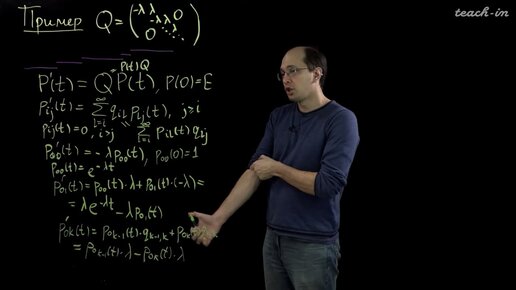 teach-in
Пример Q = (-λ λ 0
-λ λ
0 ⋱ ⋱)
= P(t)Q
P'(t) = Q P(t), P(0) = E
P'ij(t) = ∑_{l=i}^{∞} q_{il} P_{lj}(t), j ≥ i
Pij(t) = 0, i > j ∑_{l=i}^{∞} P_{il}(t) q_{lj}
P'₀₀(t) = -λ P₀₀(t), P₀₀(0) = 1
P₀₀(t) = e^{-λt}
P'₀₁(t) = P₀₀(t)·λ + P₀₁(t)·(-λ) =
= λ e^{-λt} - λ P₀₁(t)
P'₀k(t) = P₀k-₁(t)·q_{k-1,k} + P₀k(t)
= P₀k-₁(t)·λ - P₀k(t)·λ